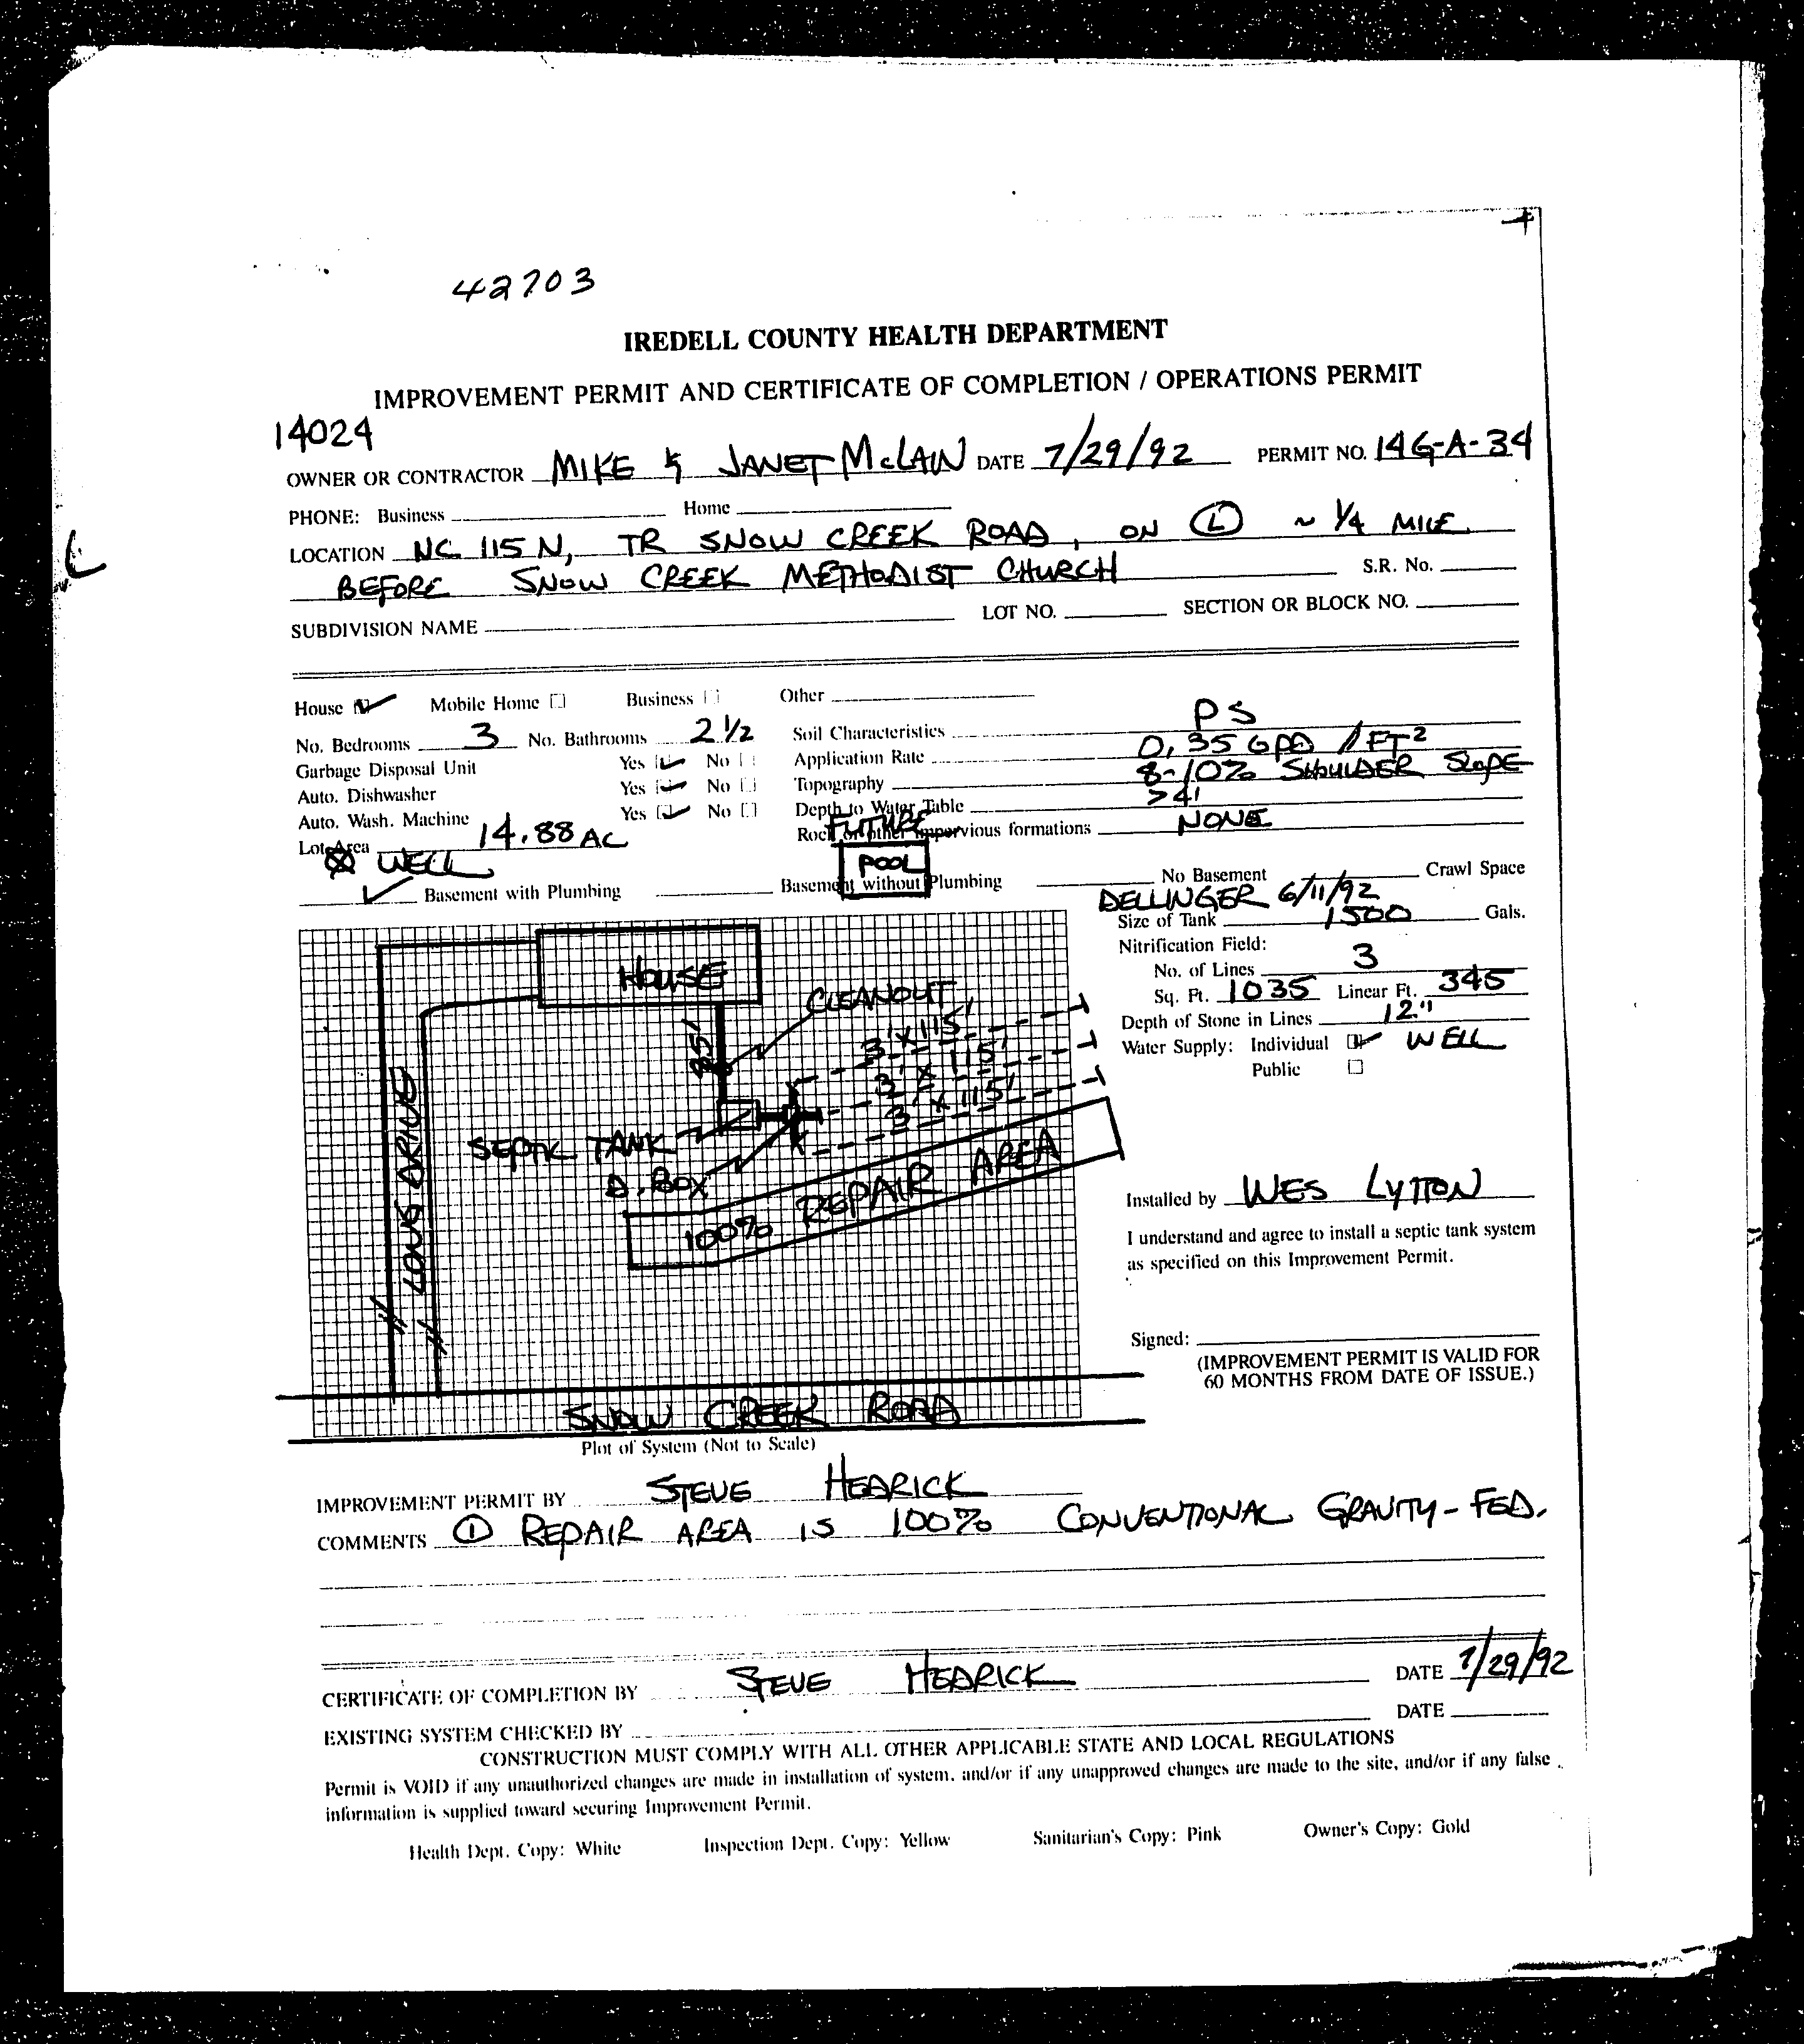 42703
IREDELL COUNTY HEALTH DEPARTMENT
IMPROVEMENT PERMIT AND CERTIFICATE OF COMPLETION / OPERATIONS PERMIT
14024
OWNER OR CONTRACTOR MIKE & JANET McLAIN DATE 7/29/92 PERMIT NO. 14G-A-34
PHONE: Business Home
LOCATION NC 115 N, TR SNOW CREEK ROAD, ON (L) ~ 1/4 MILE
BEFORE SNOW CREEK METHODIST CHURCH S.R. No.
SUBDIVISION NAME LOT NO. SECTION OR BLOCK NO.
House ✓ Mobile Home Business Other
No. Bedrooms 3 No. Bathrooms 2 1/2 Soil Characteristics PS
Garbage Disposal Unit Yes ✓ No Application Rate 0.35 GPD / FT²
Auto. Dishwasher Yes ✓ No Topography 8-10% SHOULDER SLOPE
Auto. Wash. Machine Yes ✓ No Depth to Water Table >4'
Lot Area 14.88 AC Rock or other impervious formations NONE
WELL
FUTURE
POOL
✓ Basement with Plumbing Basement without Plumbing No Basement Crawl Space
DELLINGER 6/11/92
Size of Tank 1500 Gals.
Nitrification Field:
No. of Lines 3
Sq. Ft. 1035 Linear Ft. 345
Depth of Stone in Lines 12"
Water Supply: Individual ✓ WELL
Public
HOUSE
CLEANOUT
3' x 115'
3' x 115'
3' x 115'
SEPTIC TANK
D. BOX
100% REPAIR AREA
LONG DRIVE
SNOW CREEK ROAD
Plot of System (Not to Scale)
Installed by WES LYTTON
I understand and agree to install a septic tank system
as specified on this Improvement Permit.
Signed:
(IMPROVEMENT PERMIT IS VALID FOR
60 MONTHS FROM DATE OF ISSUE.)
IMPROVEMENT PERMIT BY STEVE HEDRICK
COMMENTS ① REPAIR AREA IS 100% CONVENTIONAL GRAVITY-FED.
CERTIFICATE OF COMPLETION BY STEVE HEDRICK DATE 7/29/92
EXISTING SYSTEM CHECKED BY DATE
CONSTRUCTION MUST COMPLY WITH ALL OTHER APPLICABLE STATE AND LOCAL REGULATIONS
Permit is VOID if any unauthorized changes are made in installation of system, and/or if any unapproved changes are made to the site, and/or if any false
information is supplied toward securing Improvement Permit.
Health Dept. Copy: White Inspection Dept. Copy: Yellow Sanitarian's Copy: Pink Owner's Copy: Gold